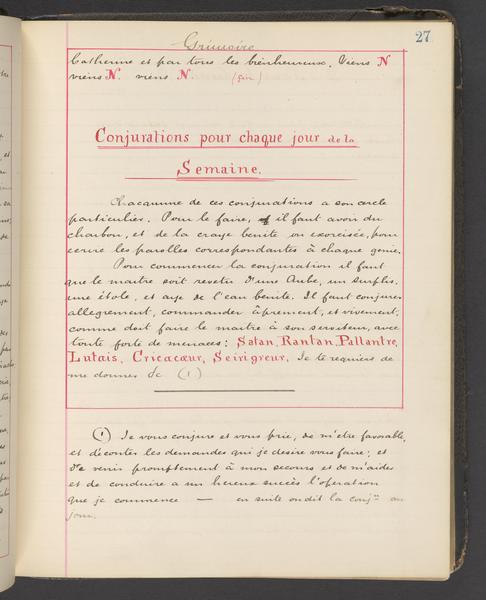 Grimoire
27
Catherine et par tous les bienheureux. Viens N
viens N. viens N. (fin)
Conjurations pour chaque jour de la
Semaine.
Chacunne de ces conjurations a son cercle
particulier. Pour le faire, il faut avoir du
charbon, et de la craye benite ou exorcisée, pour
ecrire les parolles correspondantes à chaque genie.
Pour commencer la conjuration il faut
que le maitre soit revetu d'une Aube, un surplis,
une étole, et aye de l'eau benite. Il faut conjurer
allegrement, commander âprement, et vivement,
comme doit faire le maitre à son serviteur, avec
toute sorte de menaces: Satan, Rantan, Pallantre,
Lutais, Cricacœur, Seirigreur, Je te requiers de
me donner &c (1)
(1) Je vous conjure et vous prie, de m'etre favorable,
et d'ecouter les demandes qui je desire vous faire; et
de venir promptement à mon secours et de m'aider
et de conduire a un hereux succès l'operation
que je commence — en suite on dit la conj.on au
jour.